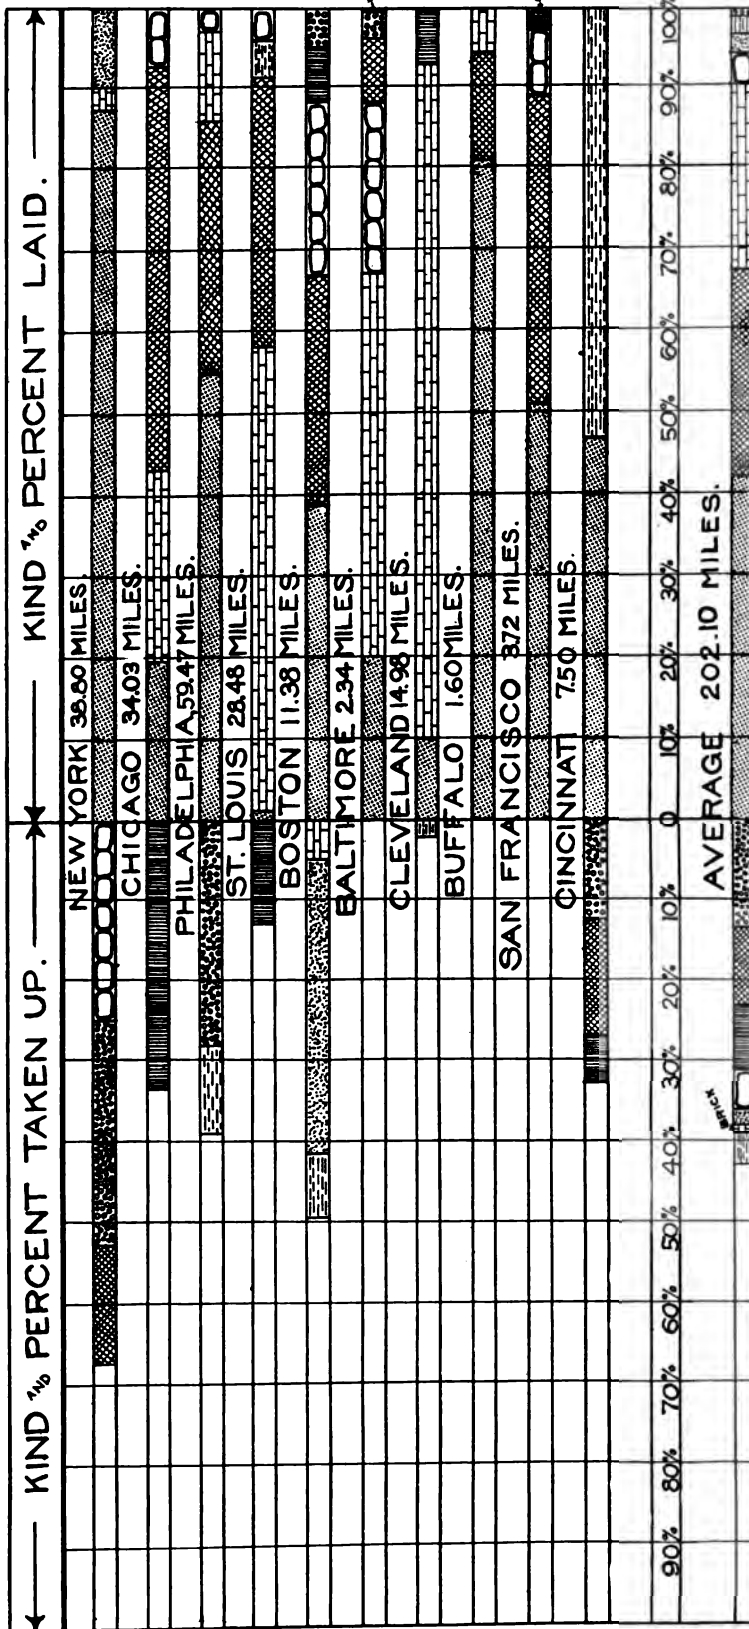 KIND AND PERCENT TAKEN UP.
KIND AND PERCENT LAID.
NEW YORK 38.80 MILES.
CHICAGO 34.03 MILES.
PHILADELPHIA, 59.47 MILES.
ST. LOUIS 28.48 MILES.
BOSTON 11.38 MILES.
BALTIMORE 2.34 MILES.
CLEVELAND 14.98 MILES.
BUFFALO 1.60 MILES.
SAN FRANCISCO 3.72 MILES.
CINCINNATI 7.50 MILES.
90% 80% 70% 60% 50% 40% 30% 20% 10% 0 10% 20% 30% 40% 50% 60% 70% 80% 90% 100%
BRICK
AVERAGE 202.10 MILES.